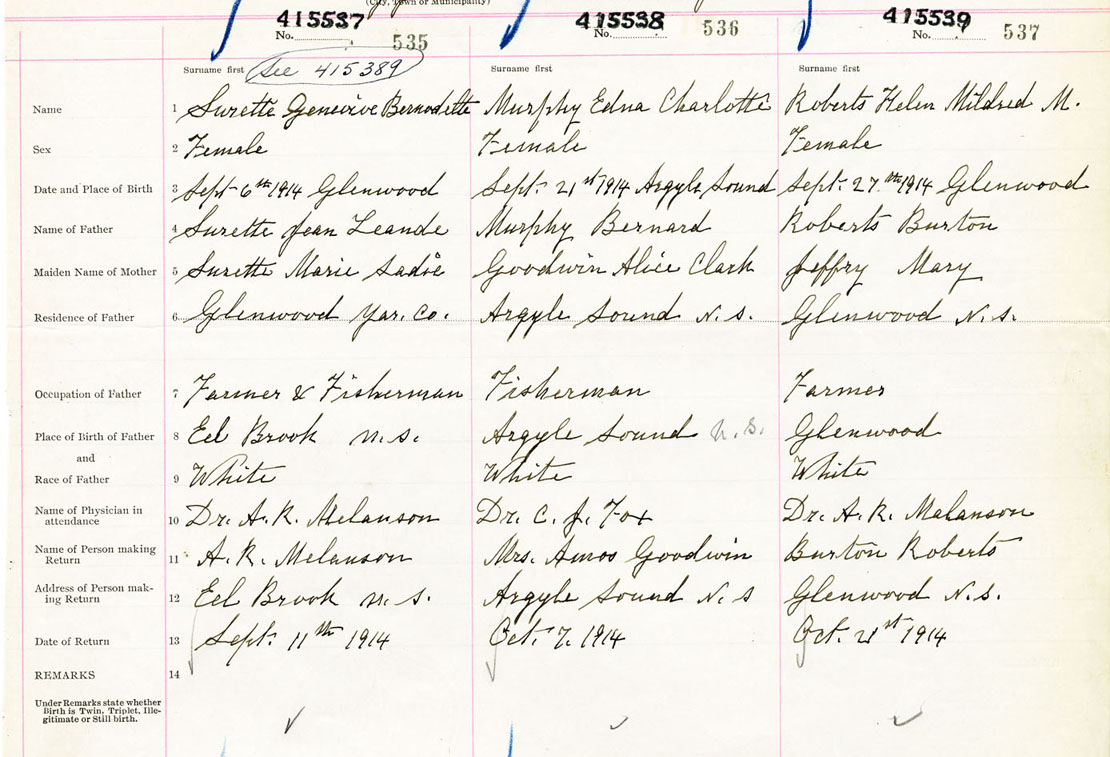 (City, Town or Municipality)
415537 415538 415539
No. 535 No. 536 No. 537
Surname first See 415389 Surname first Surname first
Name 1 Surette Genevive Bernadette Murphy Edna Charlotte Roberts Helen Mildred M.
Sex 2 Female Female Female
Date and Place of Birth 3 Sept 6th 1914 Glenwood Sept. 21st 1914 Argyle Sound Sept. 27th 1914 Glenwood
Name of Father 4 Surette Jean Leande Murphy Bernard Roberts Burton
Maiden Name of Mother 5 Surette Marie Sadie Goodwin Alice Clark Jeffry Mary
Residence of Father 6 Glenwood Yar. Co. Argyle Sound N.S. Glenwood N.S.
Occupation of Father 7 Farmer & Fisherman Fisherman Farmer
Place of Birth of Father 8 Eel Brook N.S. Argyle Sound N.S. Glenwood
and
Race of Father 9 White White White
Name of Physician in
attendance 10 Dr. A.R. Melanson Dr. C. J. Fox Dr. A. R. Malanson
Name of Person making
Return 11 A. R. Melanson Mrs. Amos Goodwin Burton Roberts
Address of Person mak-
ing Return 12 Eel Brook N.S. Argyle Sound N.S Glenwood N.S.
Date of Return 13 Sept. 11th 1914 Oct. 7. 1914 Oct. 21st 1914
REMARKS 14
Under Remarks state whether
Birth is Twin, Triplet, Ille-
gitimate or Still birth.